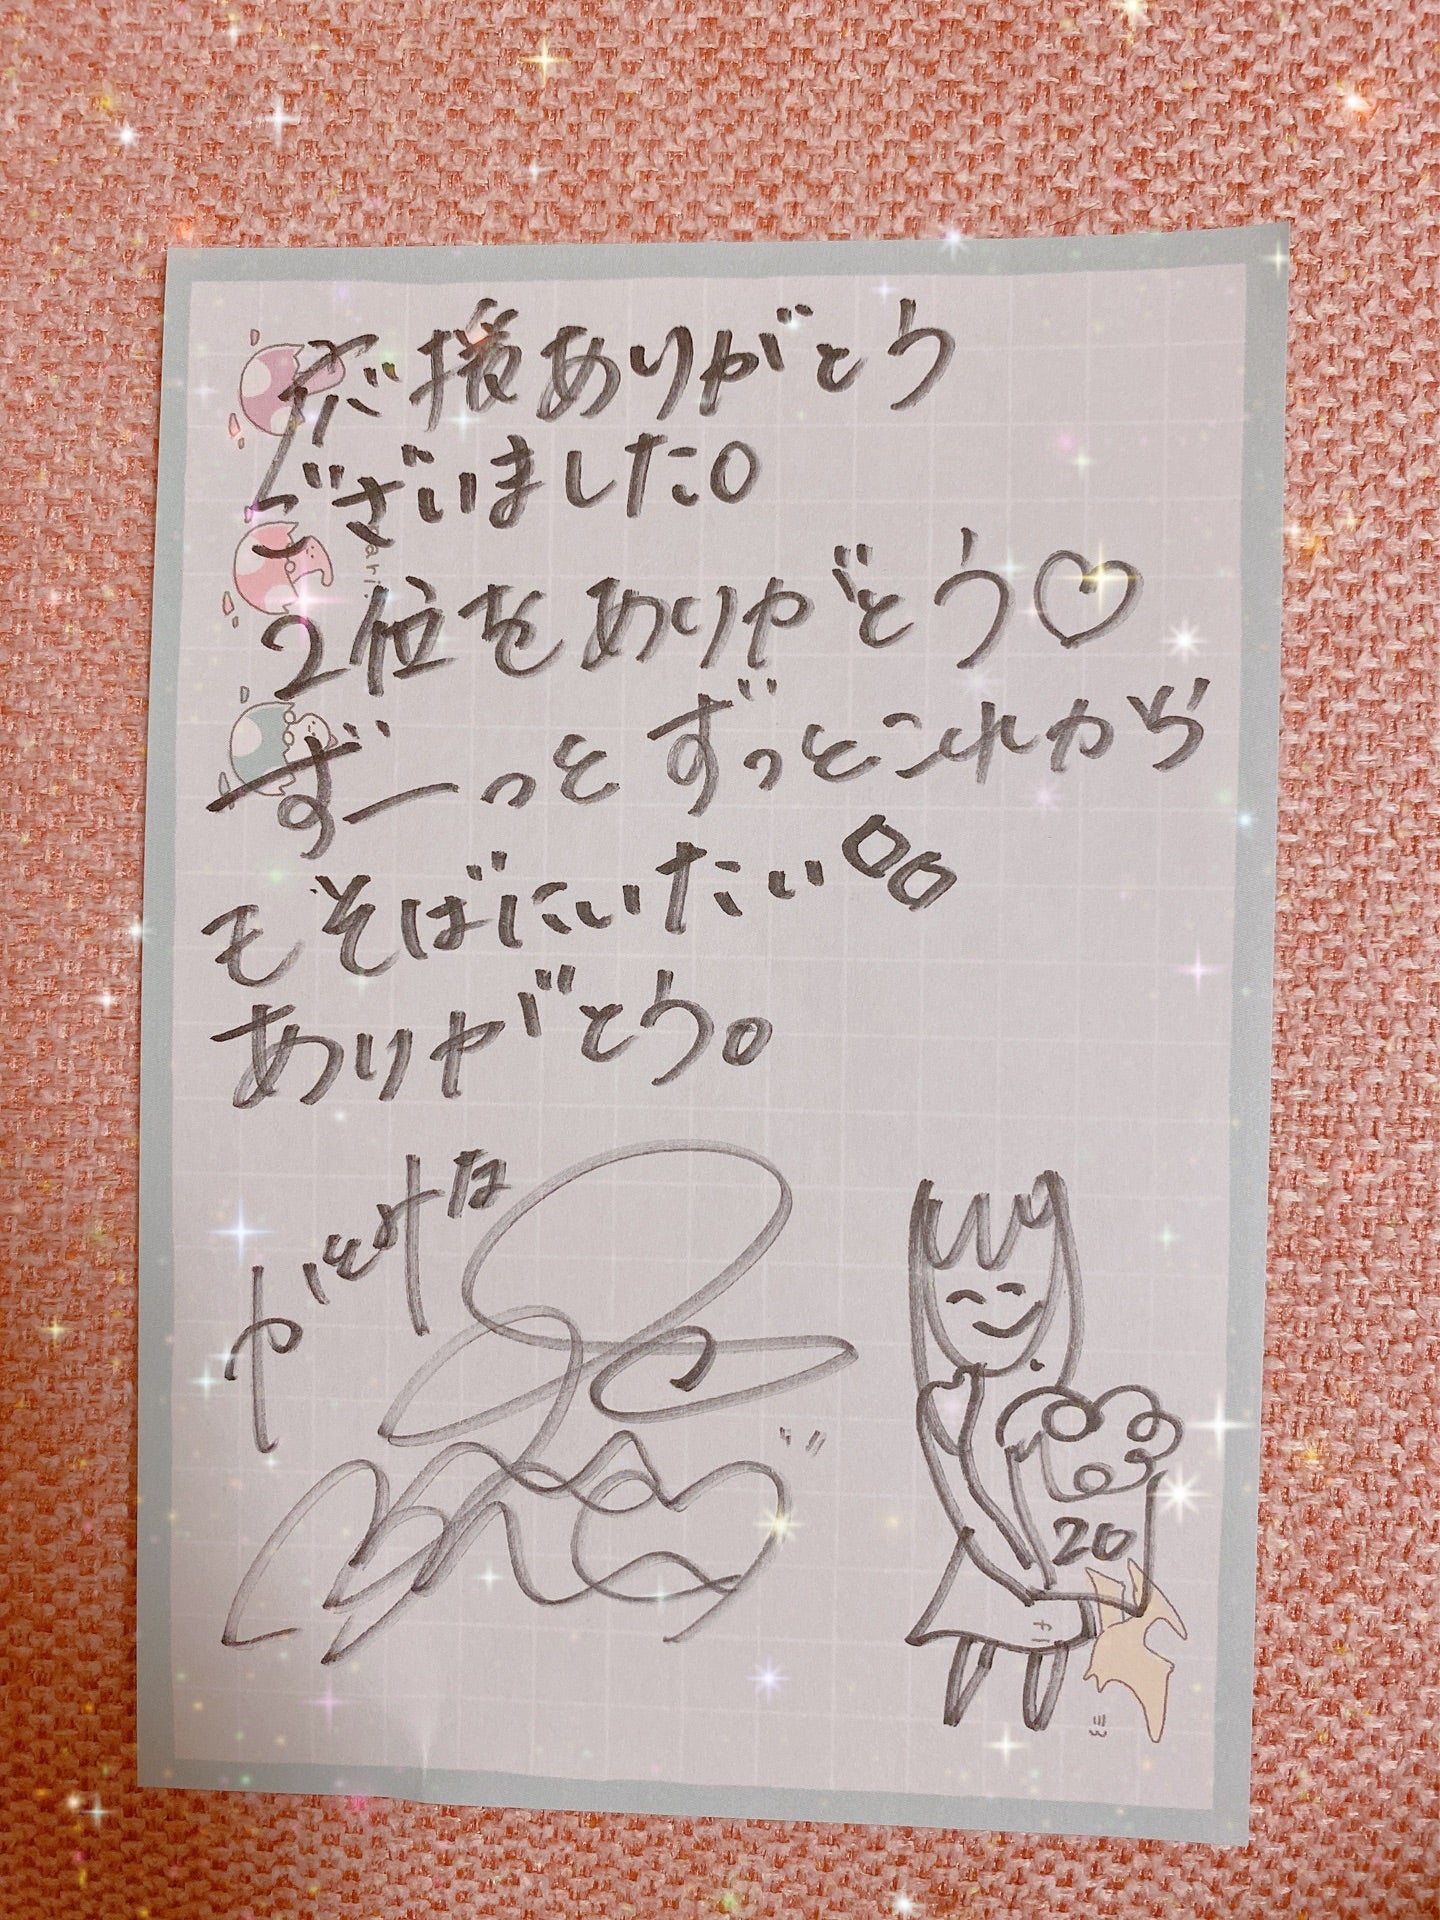 応援ありがとう
ございました。
2位をありがとう♡
ずーっとずっとこれから
もそばにいたい
ありがとう。
20